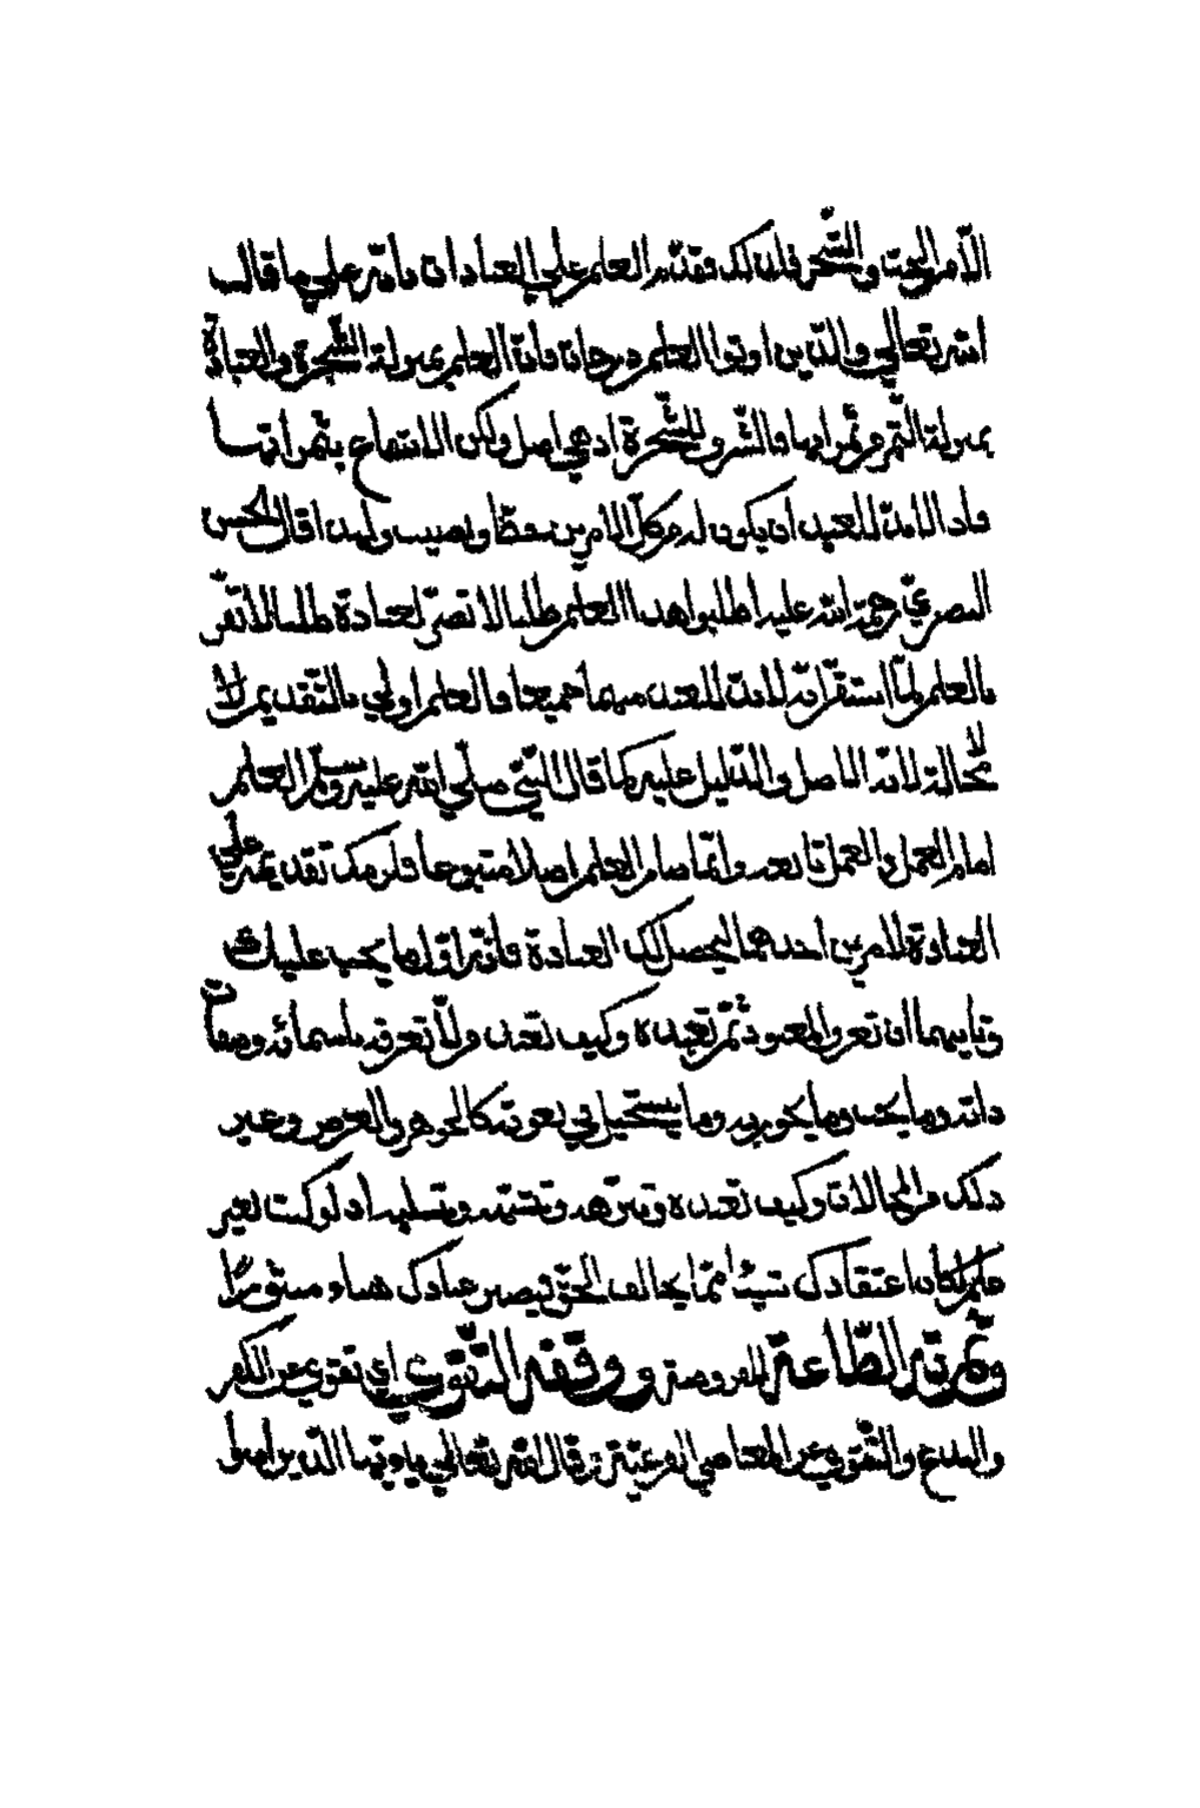 الدّر البحت والشّجر فلذلك تقدّم العلم علي العبادات دائم علي ما قال
الله تعالي والذّين اوتوا العلم درجات دانّ العلم بمنزلة الشّجرة والعبادة
بمنزلة الثّمر وثمراتها فالشّرف للشّجرة اذ هي اصل ولكن الانتفاع بثمراتها
فاذا لا بدّ للعبد ان يكون له من كلّ الامرين حظّ ونصيب ولهذا قال الحسن
البصريّ رحمة الله عليه اطلبوا هذا العلم طلبا لا تضرّ لعبادة طلبا لا تضرّ
بالعلم ولمّا استقرّ انّه لا بدّ للعبد منهما جميعا فالعلم اولي بالتّقديم لا
محالة لانّه الاصل والدّليل عليه كما قال النّبيّ صلّي الله عليه وسلّم العلم
امام العمل والعمل تابعه وانّما صار العلم اصلا متبوعا فلزمك تقديمه علي
العبادة لامرين احدهما ليحصل لك العبادة فانّه اوّلا ما يجب عليك
وثانيهما ان تعرف المعبود ثمّ تعبده وكيف تعبد ولا تعرفه باسمائه وصفات
ذاته وما يجب وما يجوز به وما يستحيل في نعوته كالجوهر والعرض وغير
ذلك من المحالات وكيف تعبده وتنزّهه وتشبّهه وتسلبه اذ لو كنت بغير
علم لكان اعتقادك شيئا ممّا يخالف الحقّ فيصير عبادتك هباء منثورا
وثمرته الطّاعة المفروضة ووفّقه التّقوي اي تقوي عن الكفر
والبدع والتّقوي عن المعاصي الفرعيّة قال الله تعالي يا ايّها الذّين امنوا